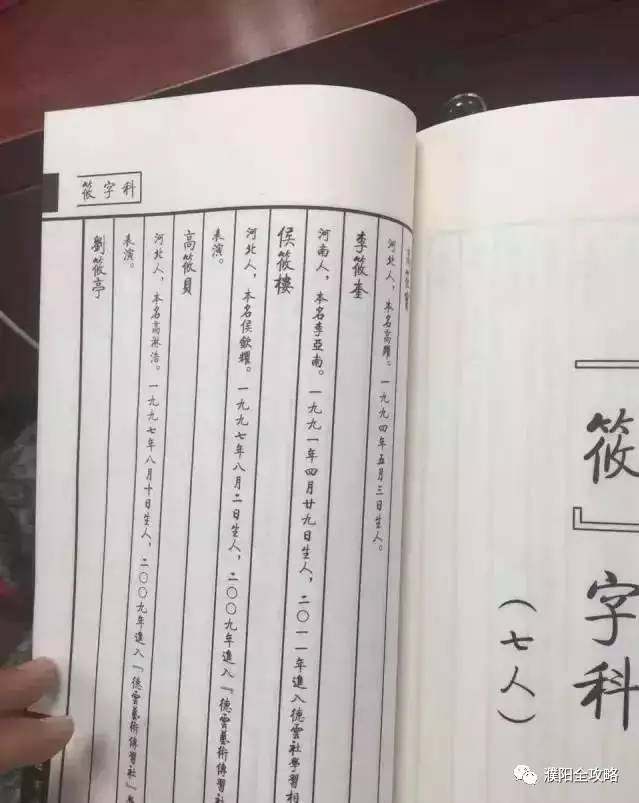 『筱』字科
（七人）
筱字科
河北人，本名高耀。一九九四年五月三日生人。
李筱奎
河南人，本名李亞南。一九九一年四月廿九日生人，二〇一一年進入德雲社學習相
侯筱樓
河北人，本名侯歆耀。一九九七年八月二日生人，二〇〇九年進入『德雲藝術傳習社
表演。
高筱貝
河北人，本名高淋浩。一九九七年八月十日生人，二〇〇九年進入『德雲藝術傳習社』
表演。
劉筱亭
濮阳全攻略